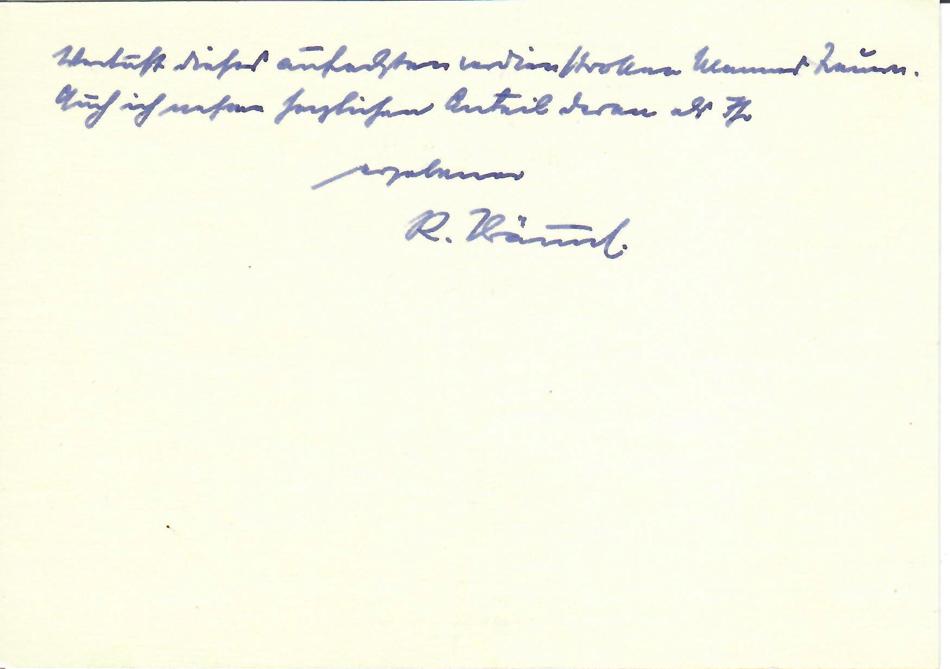 Verlust dieses aufrechten verdienstvollen Mannes trauern.
Auch ich nehme herzlichen Anteil daran als Ihr
ergebener
R.